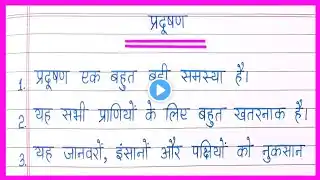 प्रदूषण
1. प्रदूषण एक बहुत बड़ी समस्या है।
2. यह सभी प्राणियों के लिए बहुत खतरनाक है।
3. यह जानवरों, इंसानों और पक्षियों को नुकसान